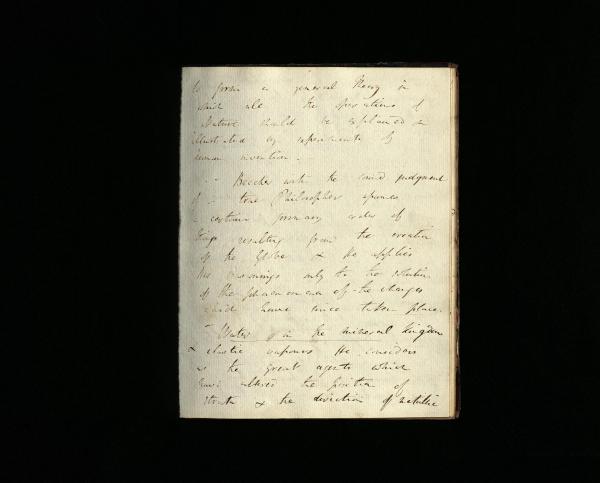 to form a general theory in
which all the operations of
Nature should be explained or
illustrated by experiments of
human invention.
Beccher with the sound judgment
of a true Philosopher assumes
a certain primary order of
things resulting from the creation
of the Globe & he applies
his reasonings only to the solution
of the phenomena of the changes
which have since taken place.
Water in the mineral kingdom
& elastic vapours he considers
as the great agents which
have altered the position of
strata & the direction of metallic